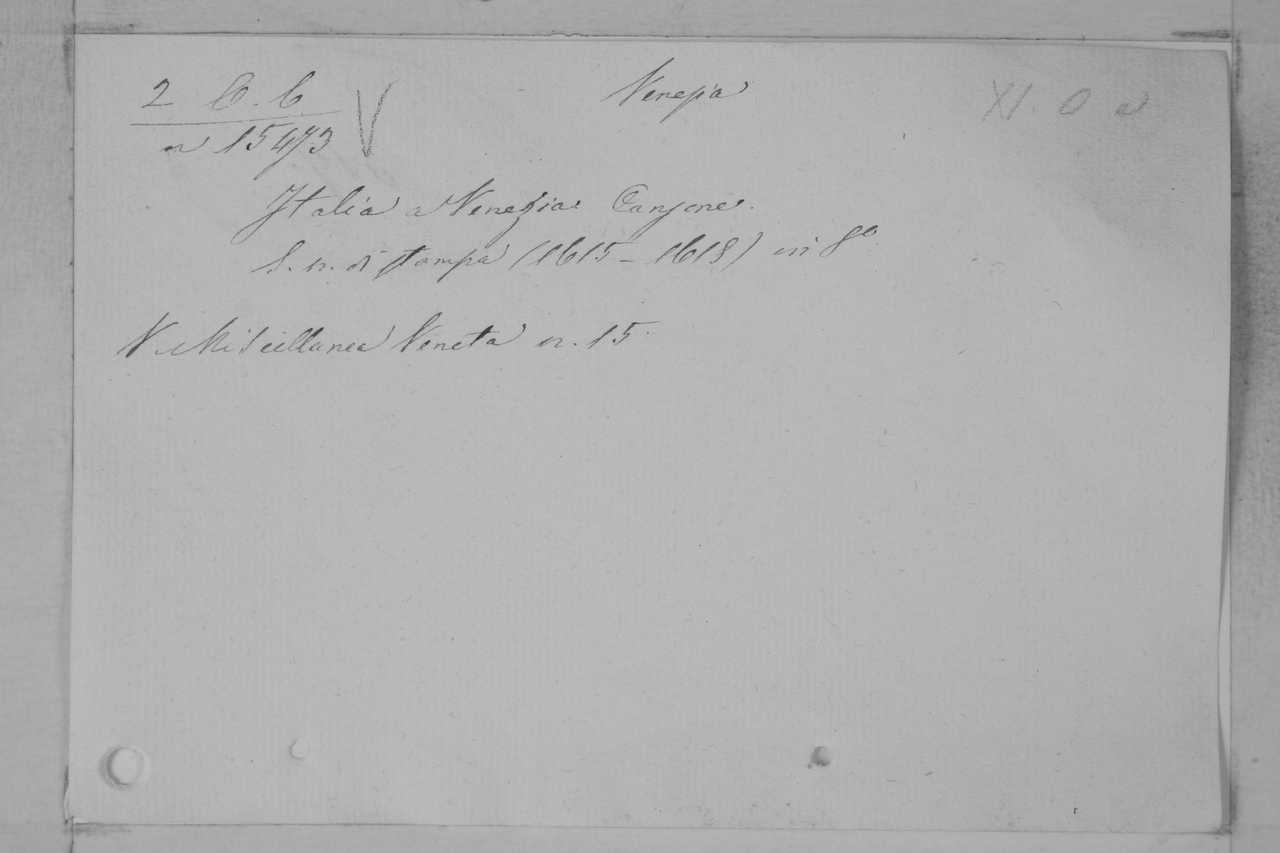 2 C. C V
n 15473
Venezia
XI. O a
Italia a Venezia Canzone.
S. n. di stampa (1615 - 1618) in 8º
V. Miscellanea Veneta n. 15